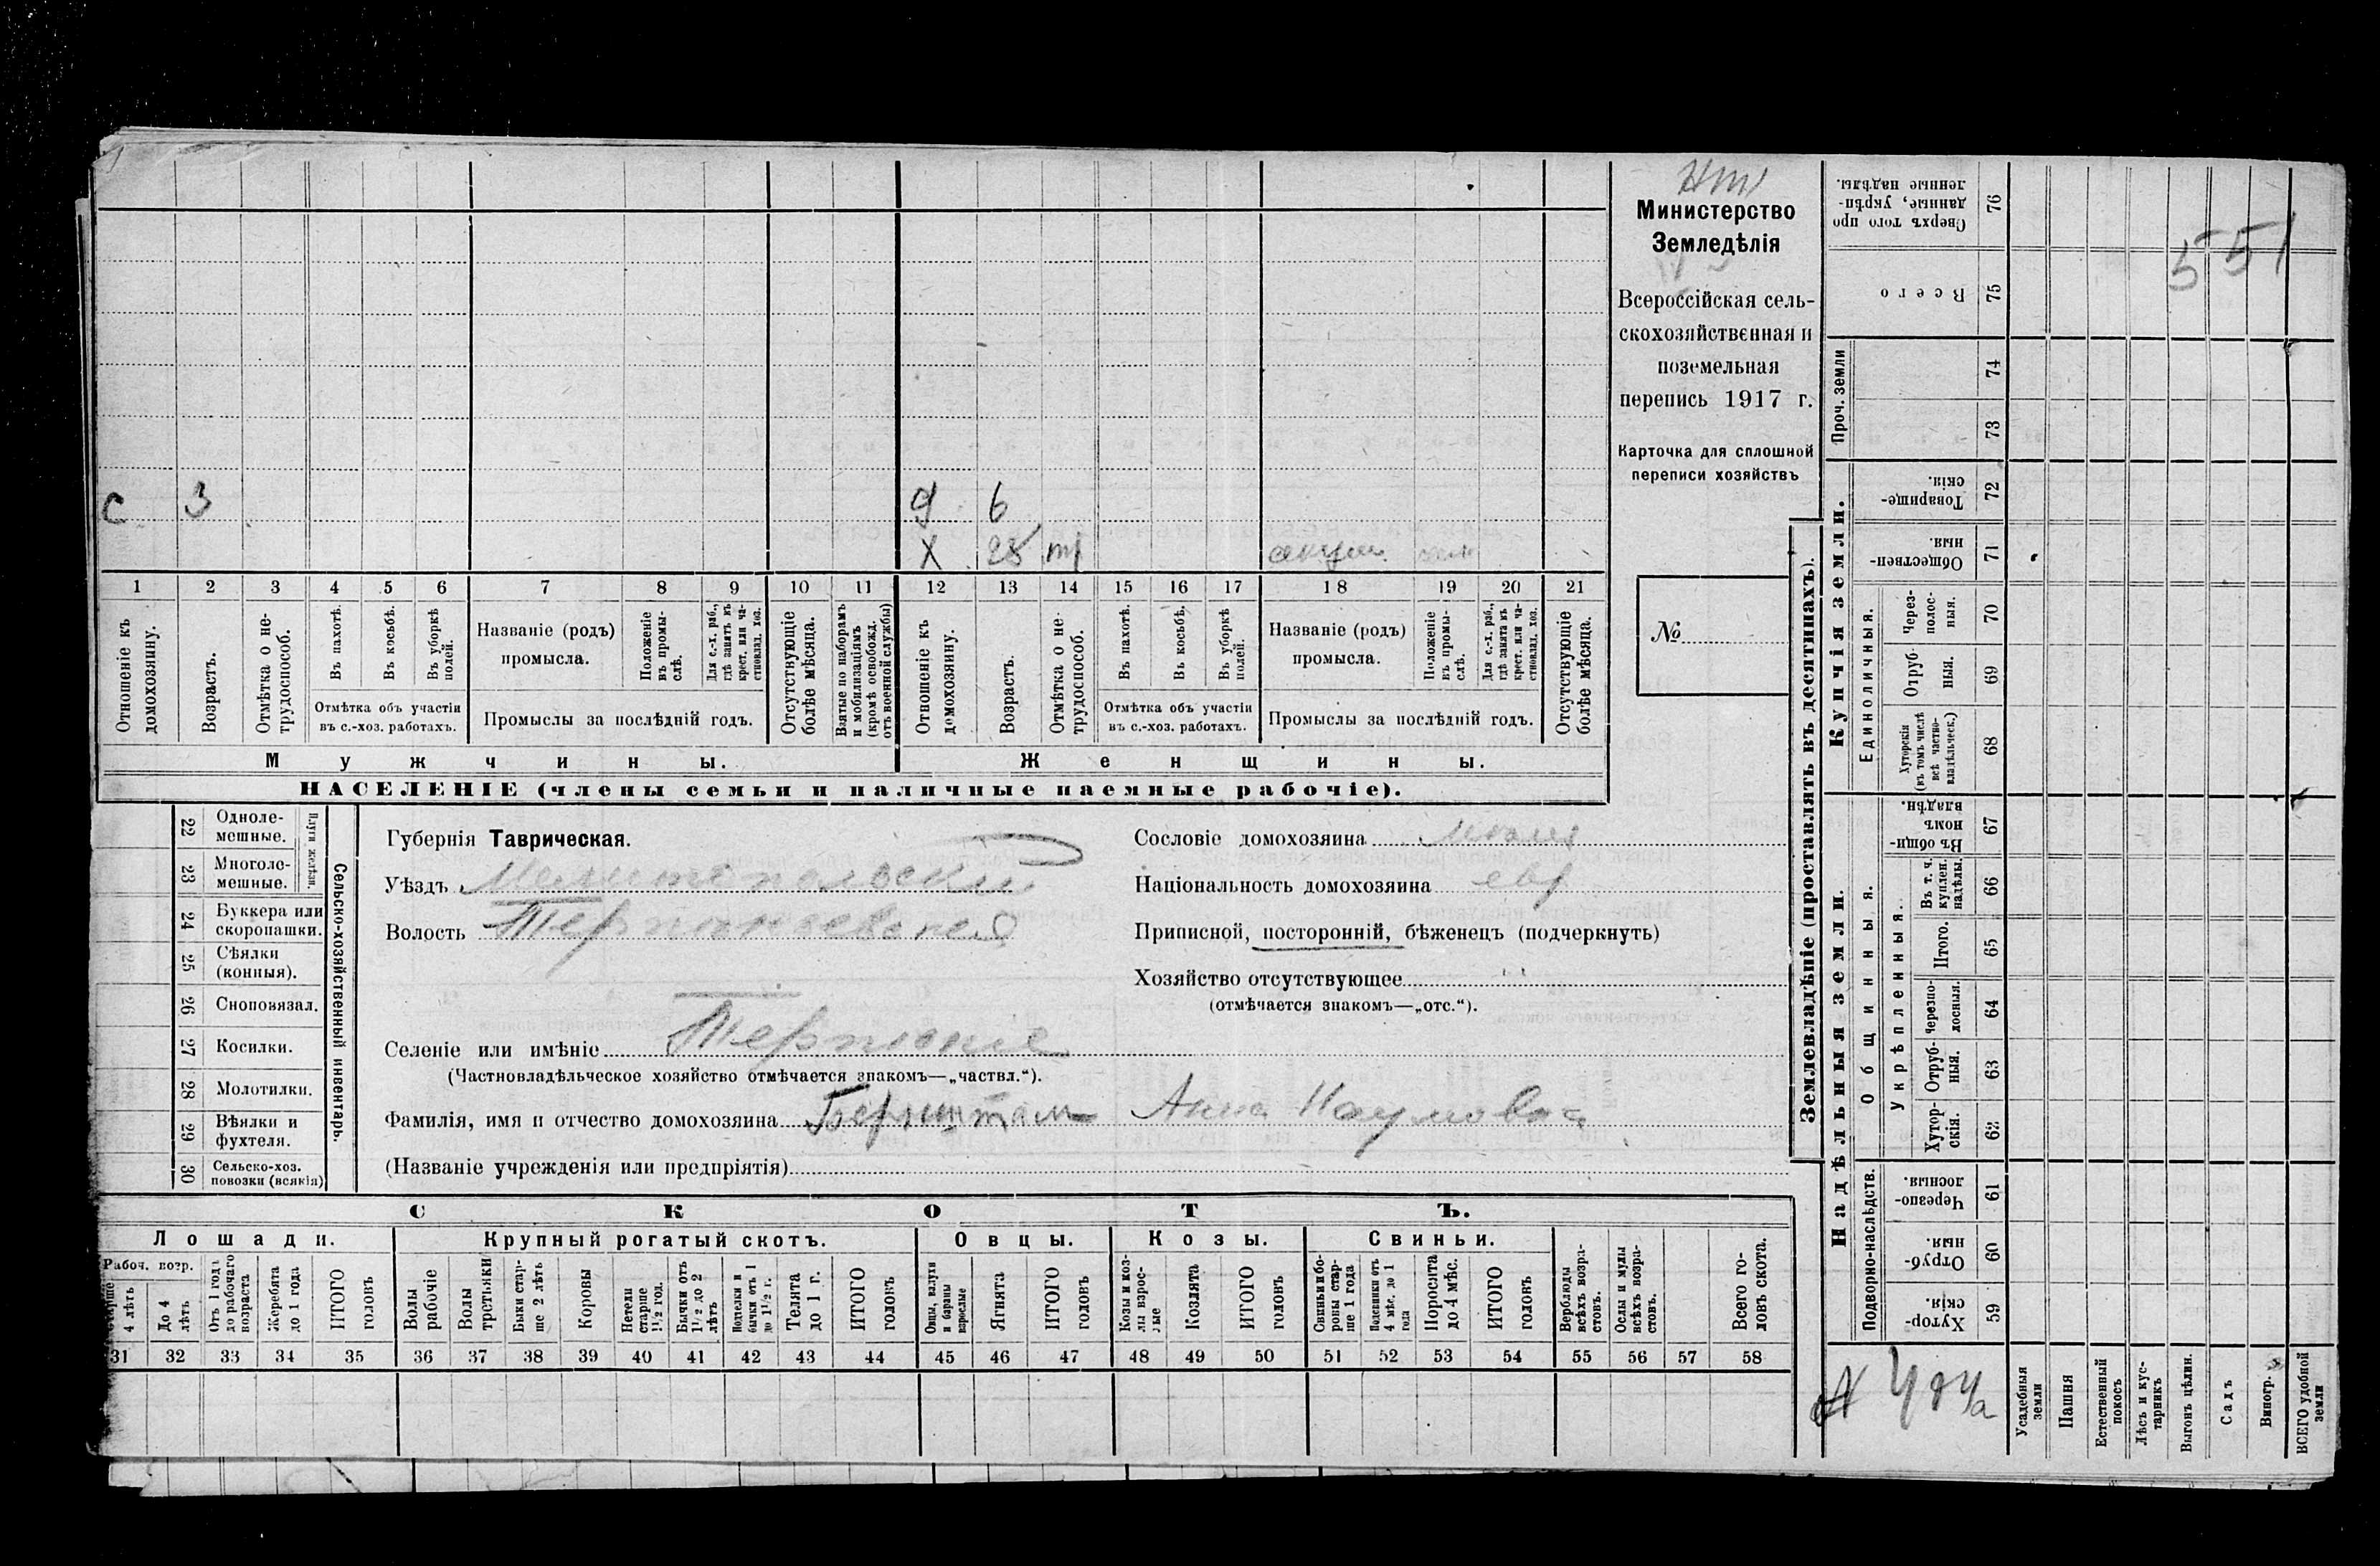 551
Министерство
Земледѣлія
Всероссійская сель-
скохозяйственная и
поземельная
перепись 1917 г.
Карточка для сплошной
переписи хозяйствъ
№
с 3 д 6
х 28
1 2 3 4 5 6 7 8 9 10 11 12 13 14 15 16 17 18 19 20 21
Отношеніе къ домохозяину.
Возрастъ.
Отмѣтка о не-трудоспособ.
Въ пахотѣ.
Въ косьбѣ.
Въ уборкѣ полей.
Отмѣтка объ участіи
въ с.-хоз. работахъ.
Названіе (родъ)
промысла.
Положеніе въ промы-слѣ.
Для с.-х. раб., гдѣ занятъ въ крест. или ча-стновлад. хоз.
Промыслы за послѣдній годъ.
Отсутствующіе болѣе мѣсяца.
Взятые по наборамъ и мобилизаціямъ (кромѣ освобожд. отъ военной службы)
Отношеніе къ домохозяину.
Возрастъ.
Отмѣтка о не-трудоспособ.
Въ пахотѣ.
Въ косьбѣ.
Въ уборкѣ полей.
Отмѣтка объ участіи
въ с.-хоз. работахъ.
Названіе (родъ)
промысла.
Положеніе въ промы-слѣ.
Для с.-х. раб., гдѣ занята въ крест. или ча-стновлад. хоз.
Промыслы за послѣдній годъ.
Отсутствующіе болѣе мѣсяца.
Мужчины. Женщины.
НАСЕЛЕНІЕ (члены семьи и наличные наемные рабочіе).
Сельско-хозяйственный инвентарь.
Плуги желѣзн.
22 Одноле-мешные.
23 Многоле-мешные.
24 Буккера или скоропашки.
25 Сѣялки (конныя).
26 Сноповязал.
27 Косилки.
28 Молотилки.
29 Вѣялки и фухтеля.
30 Сельско-хоз. повозки (всякія)
Губернія Таврическая.
Уѣздъ Мелитопольскій
Волость Терпѣніевская
Селеніе или имѣніе Терпѣніе
(Частновладѣльческое хозяйство отмѣчается знакомъ—„частвл.“).
Фамилія, имя и отчество домохозяина Бернштам Анна Наумовна
(Названіе учрежденія или предпріятія)
Сословіе домохозяина
Національность домохозяина евр
Приписной, посторонній, бѣженецъ (подчеркнуть)
Хозяйство отсутствующее
(отмѣчается знакомъ—„отс.“).
СКОТЪ.
Лошади. Крупный рогатый скотъ. Овцы. Козы. Свиньи.
Рабоч. возр.
Старше 4 лѣтъ
До 4 лѣтъ
Отъ 1 года до рабочаго возраста
Жеребята до 1 года
ИТОГО головъ
Волы рабочіе
Волы третьяки
Быки стар-ше 2 лѣтъ
Коровы
Нетели старше 1½ год.
Бычки отъ 1½ до 2 лѣтъ
Подтелки и бычки отъ 1 до 1½ г.
Телята до 1 г.
ИТОГО головъ
Овцы, валухи и бараны взрослые
Ягнята
ИТОГО головъ
Козы и коз-лы взрос-лые
Козлята
ИТОГО головъ
Свиньи и бо-ровы стар-ше 1 года
Подсвинки отъ 4 мѣс. до 1 года
Поросята до 4 мѣс.
ИТОГО головъ
Верблюды всѣхъ возра-стовъ.
Ослы и мулы всѣхъ возра-стовъ.
Всего го-ловъ скота.
31 32 33 34 35 36 37 38 39 40 41 42 43 44 45 46 47 48 49 50 51 52 53 54 55 56 57 58
Землевладѣніе (проставлять въ десятинахъ).
Надѣльныя земли.
Купчія земли.
Проч. земли
Подворно-наслѣдств.
Общинныя.
Укрѣпленныя.
Единоличныя.
Сверхъ того про-данные, укрѣп-ленные надѣлы. 76
Всего 75
74
73
Товарище-скія. 72
Обществен-ныя. 71
Через-полос-ныя. 70
Отруб-ныя. 69
Хуторскія (въ томъ числѣ всѣ частно-владѣльческ.) 68
Въ общи-номъ владѣн. 67
Въ т. ч. куплен. надѣлы. 66
Итого. 65
Черезпо-лосныя. 64
Отруб-ныя. 63
Хутор-скія. 62
Черезпо-лосныя. 61
Отруб-ныя. 60
Хутор-скія. 59
Усадебныя земли
Пашня
Естественный покосъ
Лѣсъ и кус-тарникъ
Выгонъ цѣлин.
Садъ
Виногр.
ВСЕГО удобной земли